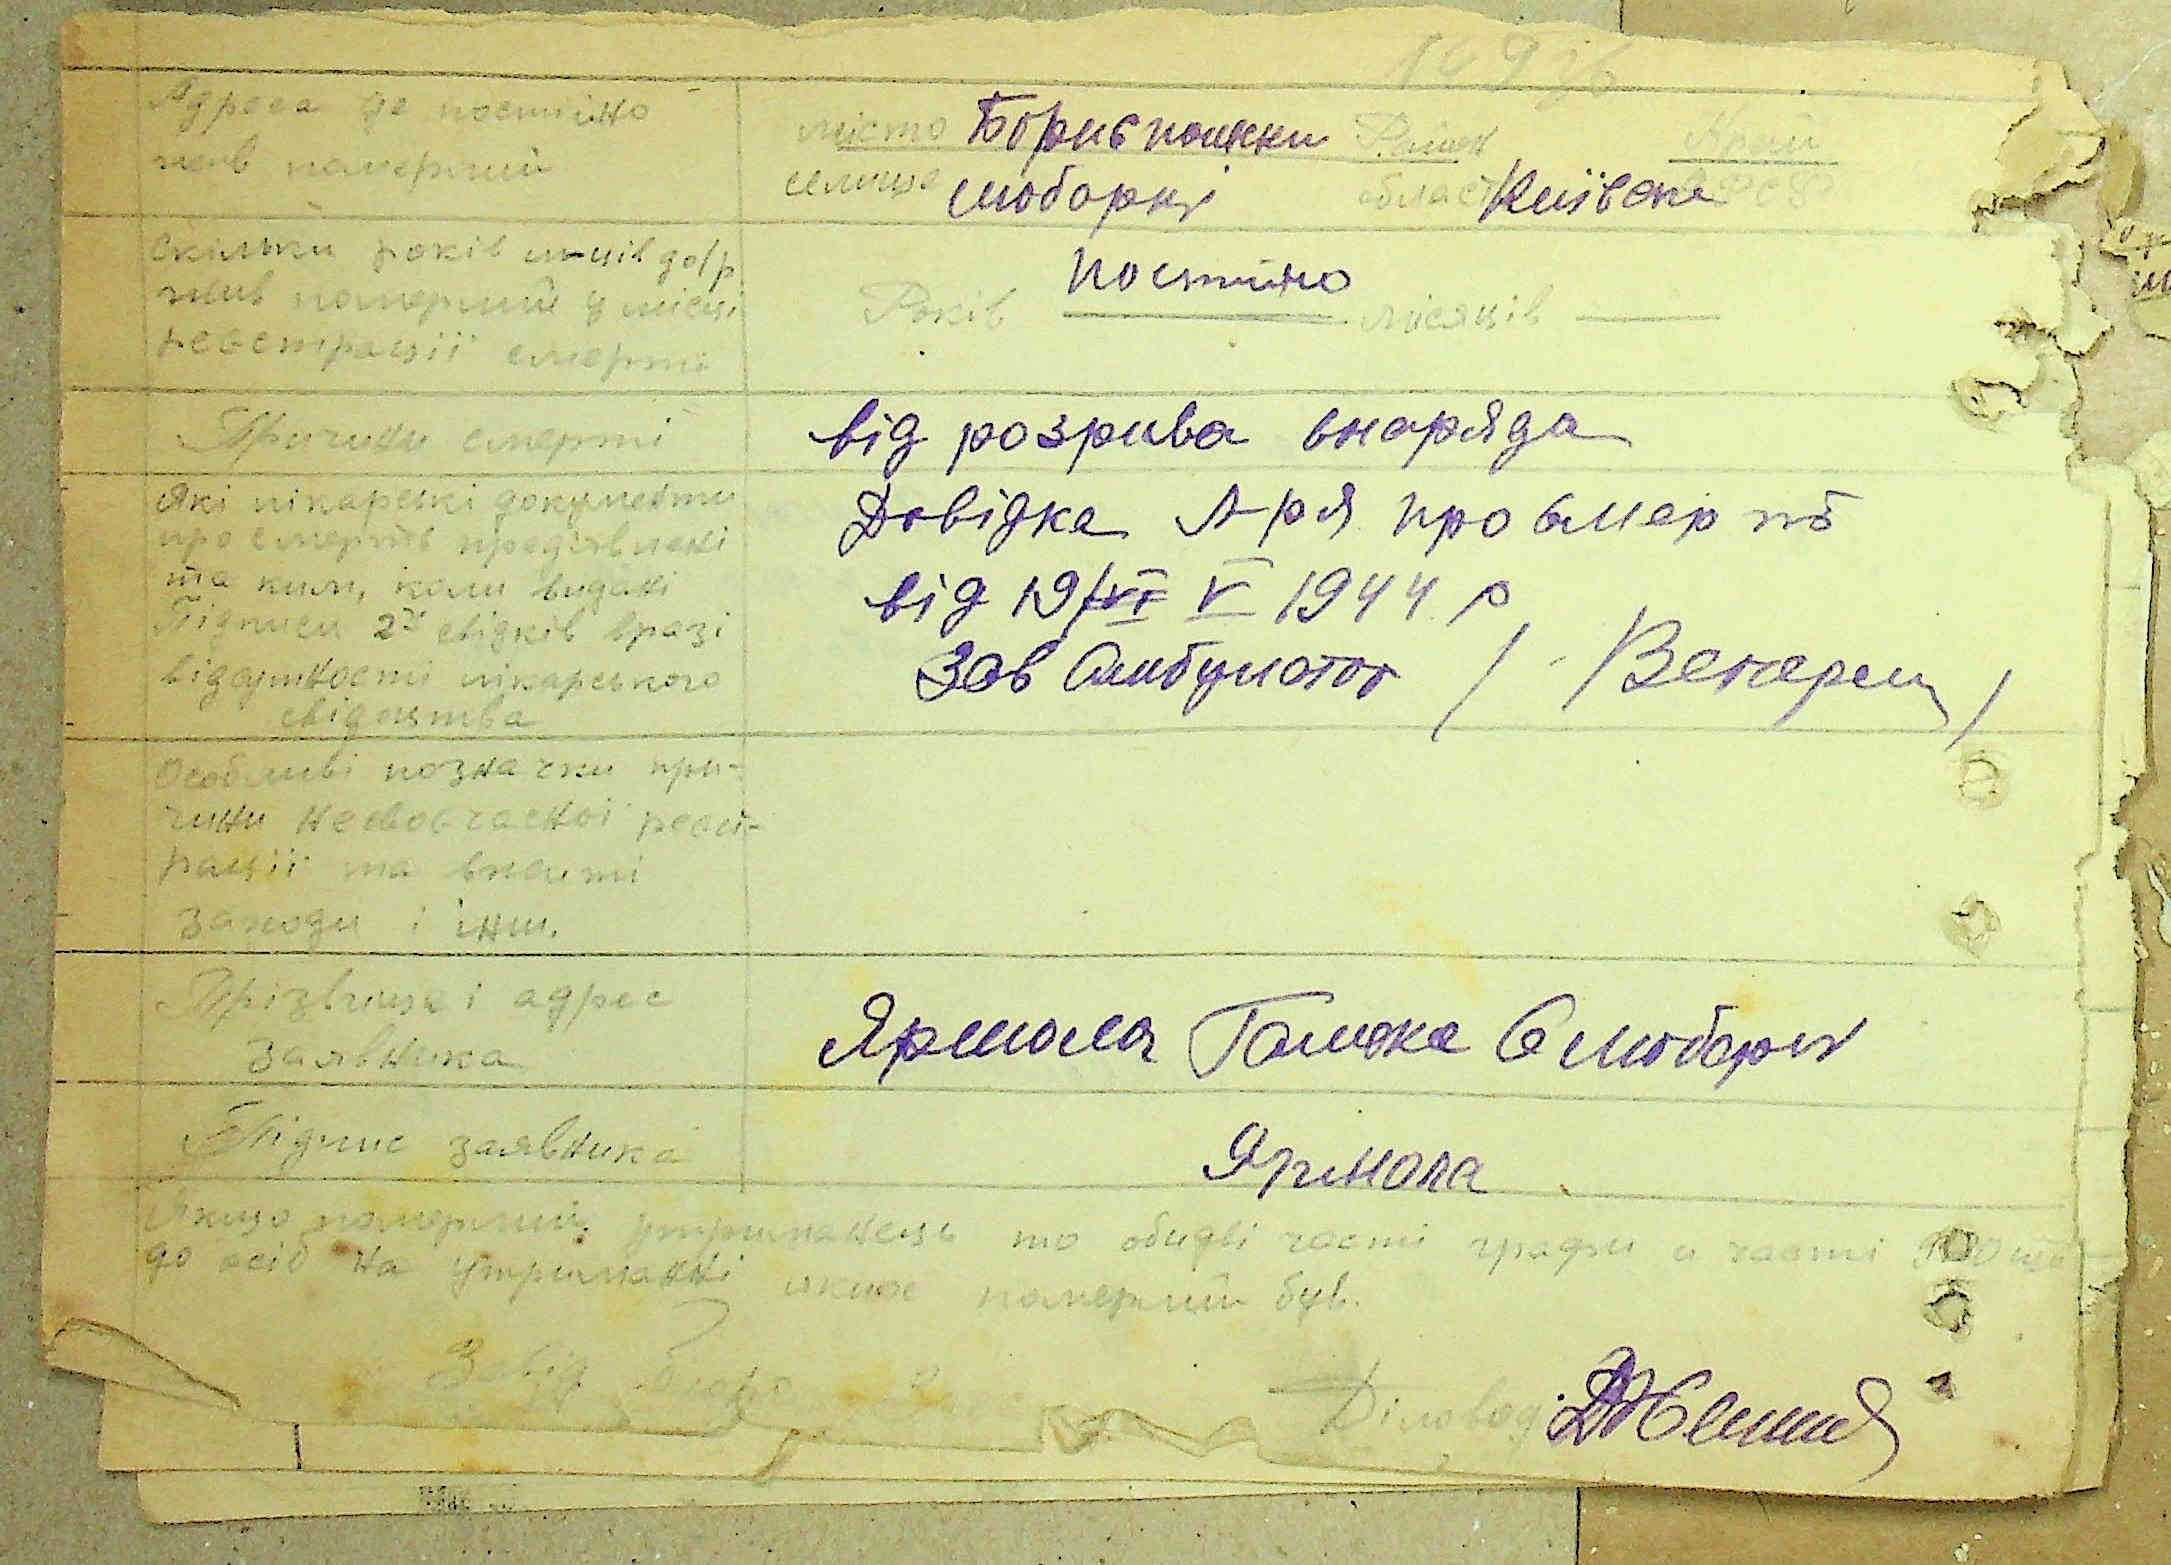 Адреса де постійно
жив померший
місто Бориспольский Район Край
селище Любарці область Київська
Скільки років місяців до/р
жив померший у місці
реєстрації смерті
постійно
Років місяців
Причини смерті
від розрива снаряда
Які лікарські документи
про смерть пред'явлені
та ким, коли видані
Підписи 2х свідків вразі
відсутності лікарського
свідоцтва
Довідка л-ря про смерть
від 19/VI V 1944 р
Зав Амбулатор /
Особливі позначки при-
чини несвоєчасної реєст-
рації та вжиті
заходи і інш.
Прізвище і адрес
заявника
Ярмола Галька С Любарці
Підпис заявника
Ярмола
Якщо померший утриманець то обидві часті графи
до осіб на утриманні яких померший був.
Завід бюро
Діловод